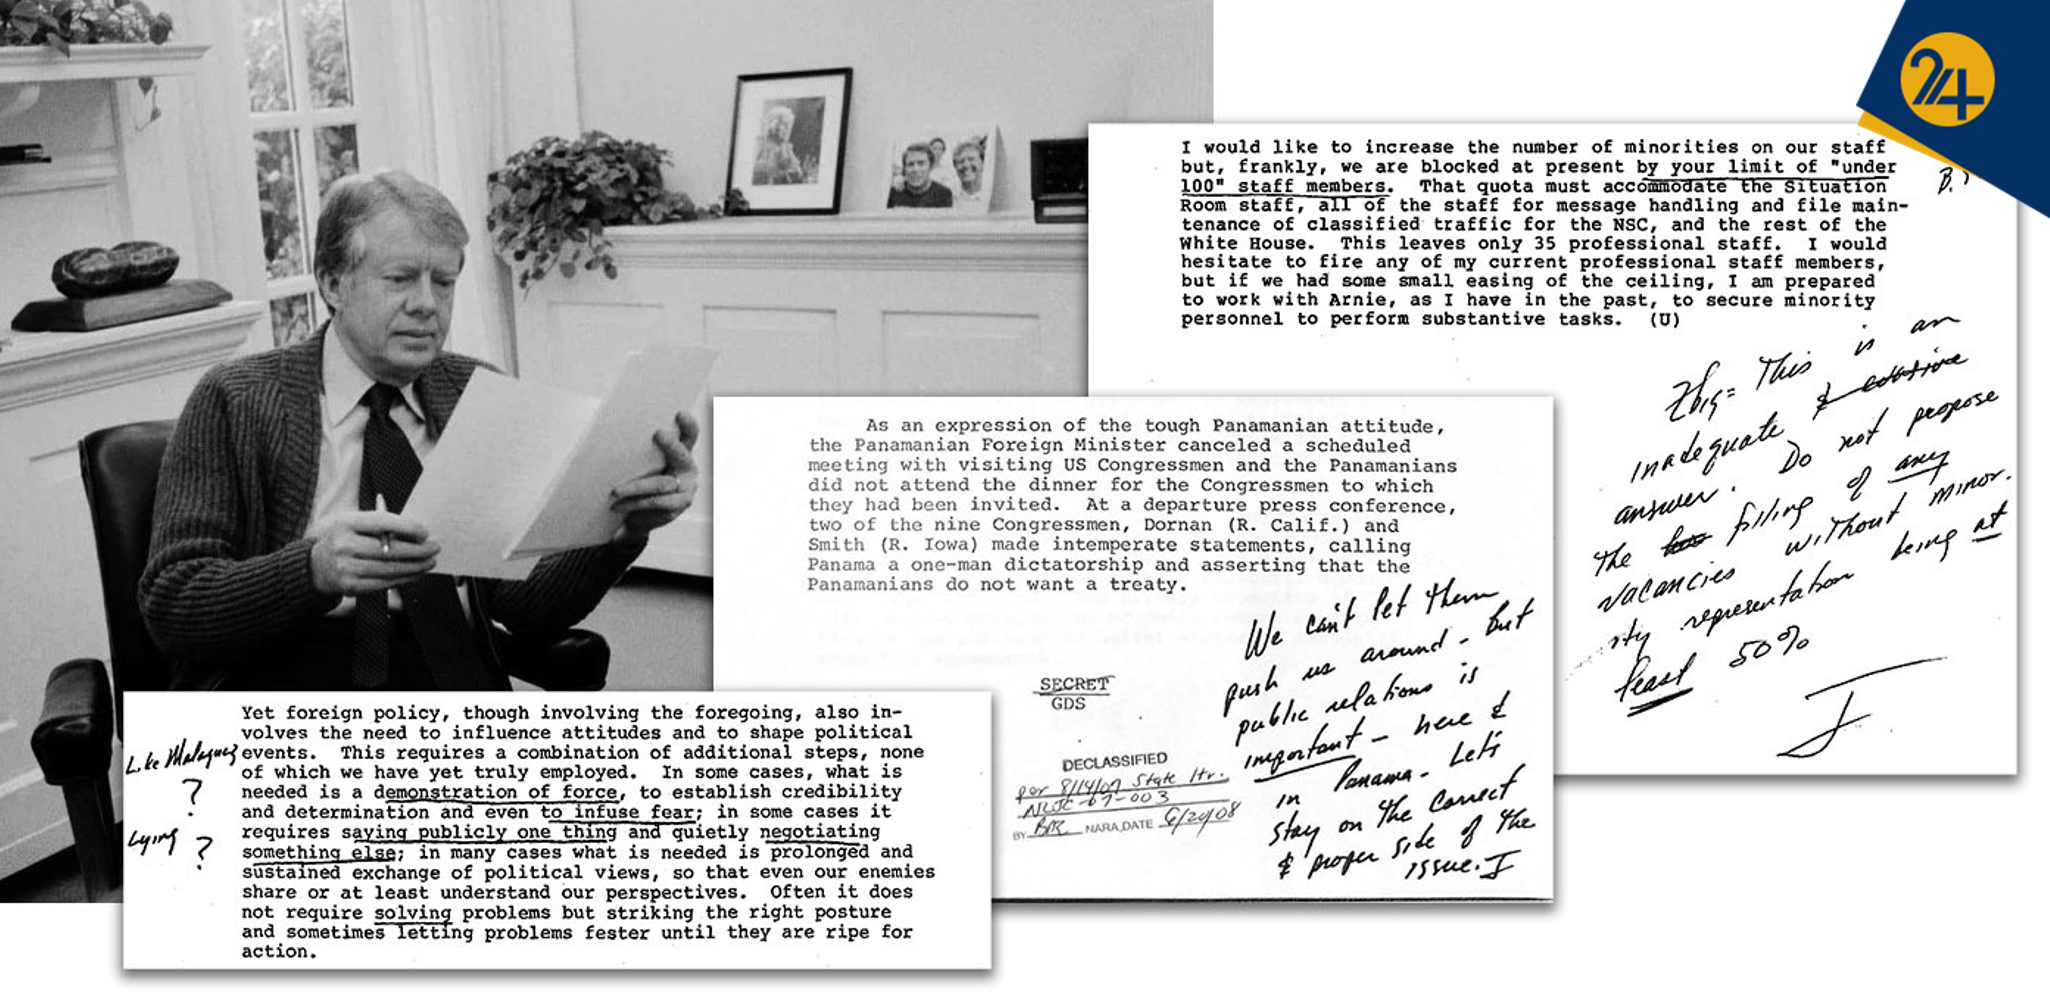 24
I would like to increase the number of minorities on our staff
but, frankly, we are blocked at present by your limit of "under
100" staff members. That quota must accommodate the Situation
Room staff, all of the staff for message handling and file main-
tenance of classified traffic for the NSC, and the rest of the
White House. This leaves only 35 professional staff. I would
hesitate to fire any of my current professional staff members,
but if we had some small easing of the ceiling, I am prepared
to work with Arnie, as I have in the past, to secure minority
personnel to perform substantive tasks. (U)
Zbig - This is an
inadequate & evasive
answer. Do not propose
the filling of any
vacancies without minor-
ity representation being at
least 50%
J
As an expression of the tough Panamanian attitude,
the Panamanian Foreign Minister canceled a scheduled
meeting with visiting US Congressmen and the Panamanians
did not attend the dinner for the Congressmen to which
they had been invited. At a departure press conference,
two of the nine Congressmen, Dornan (R. Calif.) and
Smith (R. Iowa) made intemperate statements, calling
Panama a one-man dictatorship and asserting that the
Panamanians do not want a treaty.
We can't let them
push us around - but
public relations is
important - here &
in Panama - Let's
stay on the correct
& proper side of the
issue. J
SECRET
GDS
DECLASSIFIED
per 8/14/07 State ltr.
NLJC-07-003
BY NARA, DATE 6/20/08
Yet foreign policy, though involving the foregoing, also in-
volves the need to influence attitudes and to shape political
events. This requires a combination of additional steps, none
of which we have yet truly employed. In some cases, what is
needed is a demonstration of force, to establish credibility
and determination and even to infuse fear; in some cases it
requires saying publicly one thing and quietly negotiating
something else; in many cases what is needed is prolonged and
sustained exchange of political views, so that even our enemies
share or at least understand our perspectives. Often it does
not require solving problems but striking the right posture
and sometimes letting problems fester until they are ripe for
action.
Like Malaguez
?
Lying
?